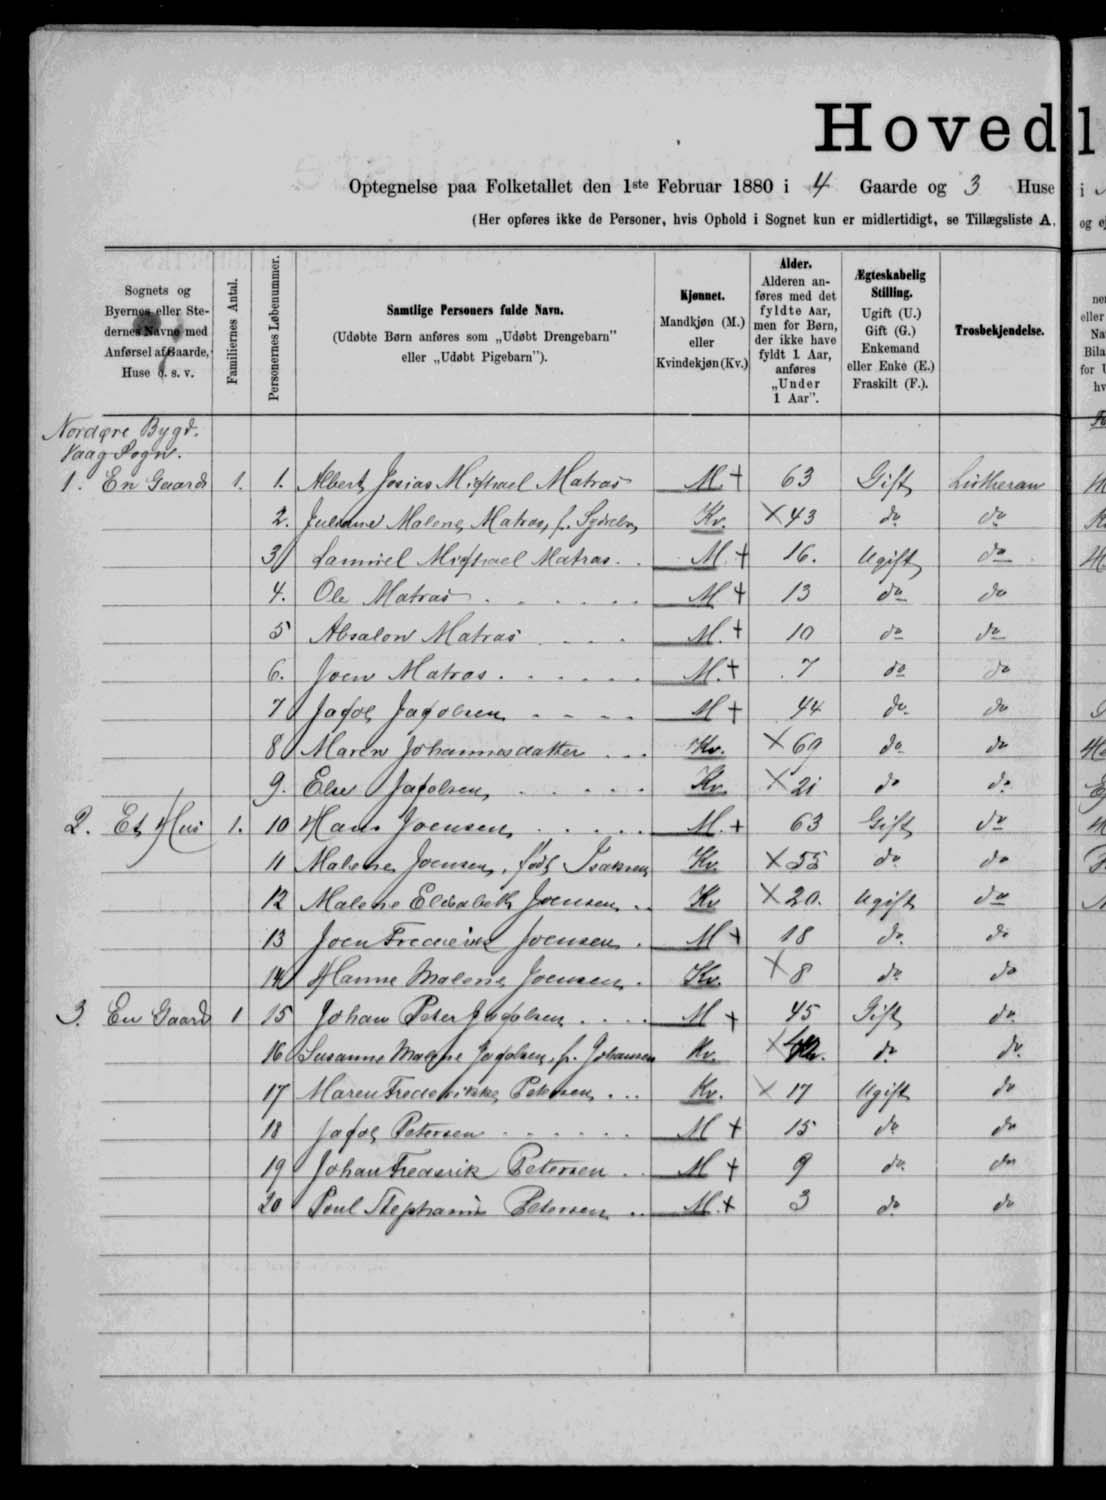 Hovedl
Optegnelse paa Folketallet den 1ste Februar 1880 i 4 Gaarde og 3 Huse i
(Her opføres ikke de Personer, hvis Ophold i Sognet kun er midlertidigt, se Tillægsliste A, og ej
Sognets og Byernes eller Stedernes Navne med Anførsel af Gaarde, Huse o. s. v.
Familiernes Antal.
Personernes Løbenummer.
Samtlige Personers fulde Navn.
(Udøbte Børn anføres som „Udøbt Drengebarn" eller „Udøbt Pigebarn").
Kjønnet.
Mandkjøn (M.) eller Kvindekjøn (Kv.)
Alder.
Alderen anføres med det fyldte Aar, men for Børn, der ikke have fyldt 1 Aar, anføres „Under 1 Aar".
Ægteskabelig Stilling.
Ugift (U.) Gift (G.) Enkemand eller Enke (E.) Fraskilt (F.).
Trosbekjendelse.
Nordøre Bygd.
Vaag Sogn.
1. En Gaard 1. 1. Albert Josias Michael Matras M. + 63 Gift Lutheran
2. Juliane Malene Matras, f. Kv. × 43 do do
3 Samuel Michael Matras . . M. + 16. Ugift do
4. Ole Matras . . . . . . M + 13 do do
5 Absalon Matras . . . M. + 10 do do
6. Joen Matras . . . . . . M. + 7 do do
7 Jacob Jacobsen . . . . M + 44 do do
8 Maren Johannesdatter . . . Kv. × 69 do do
9. Else Jacobsen . . . . . Kv. × 21 do do
2. Et Hus 1. 10 Hans Joensen . . . . . M. + 63 Gift do
11 Malene Joensen, født Isaksen Kv. × 55 do do
12 Malene Elisabeth Joensen . . Kv × 20. Ugift do
13 Joen Frederik Joensen . M + 18 do do
14 Hanne Malene Joensen . Kv. × 8 do do
3. En Gaard 1 15 Johan Peter Jacobsen . . . . M + 45 Gift do
16 Susanne Malene Jacobsen, f. Johansen Kv. × do do
17 Maren Frederikke Petersen . . . Kv. × 17 Ugift do
18 Jacob Petersen . . . . . . M + 15 do do
19 Johan Frederik Petersen . . M + 9 do do
20 Poul Stephanus Petersen . . M. + 3 do do